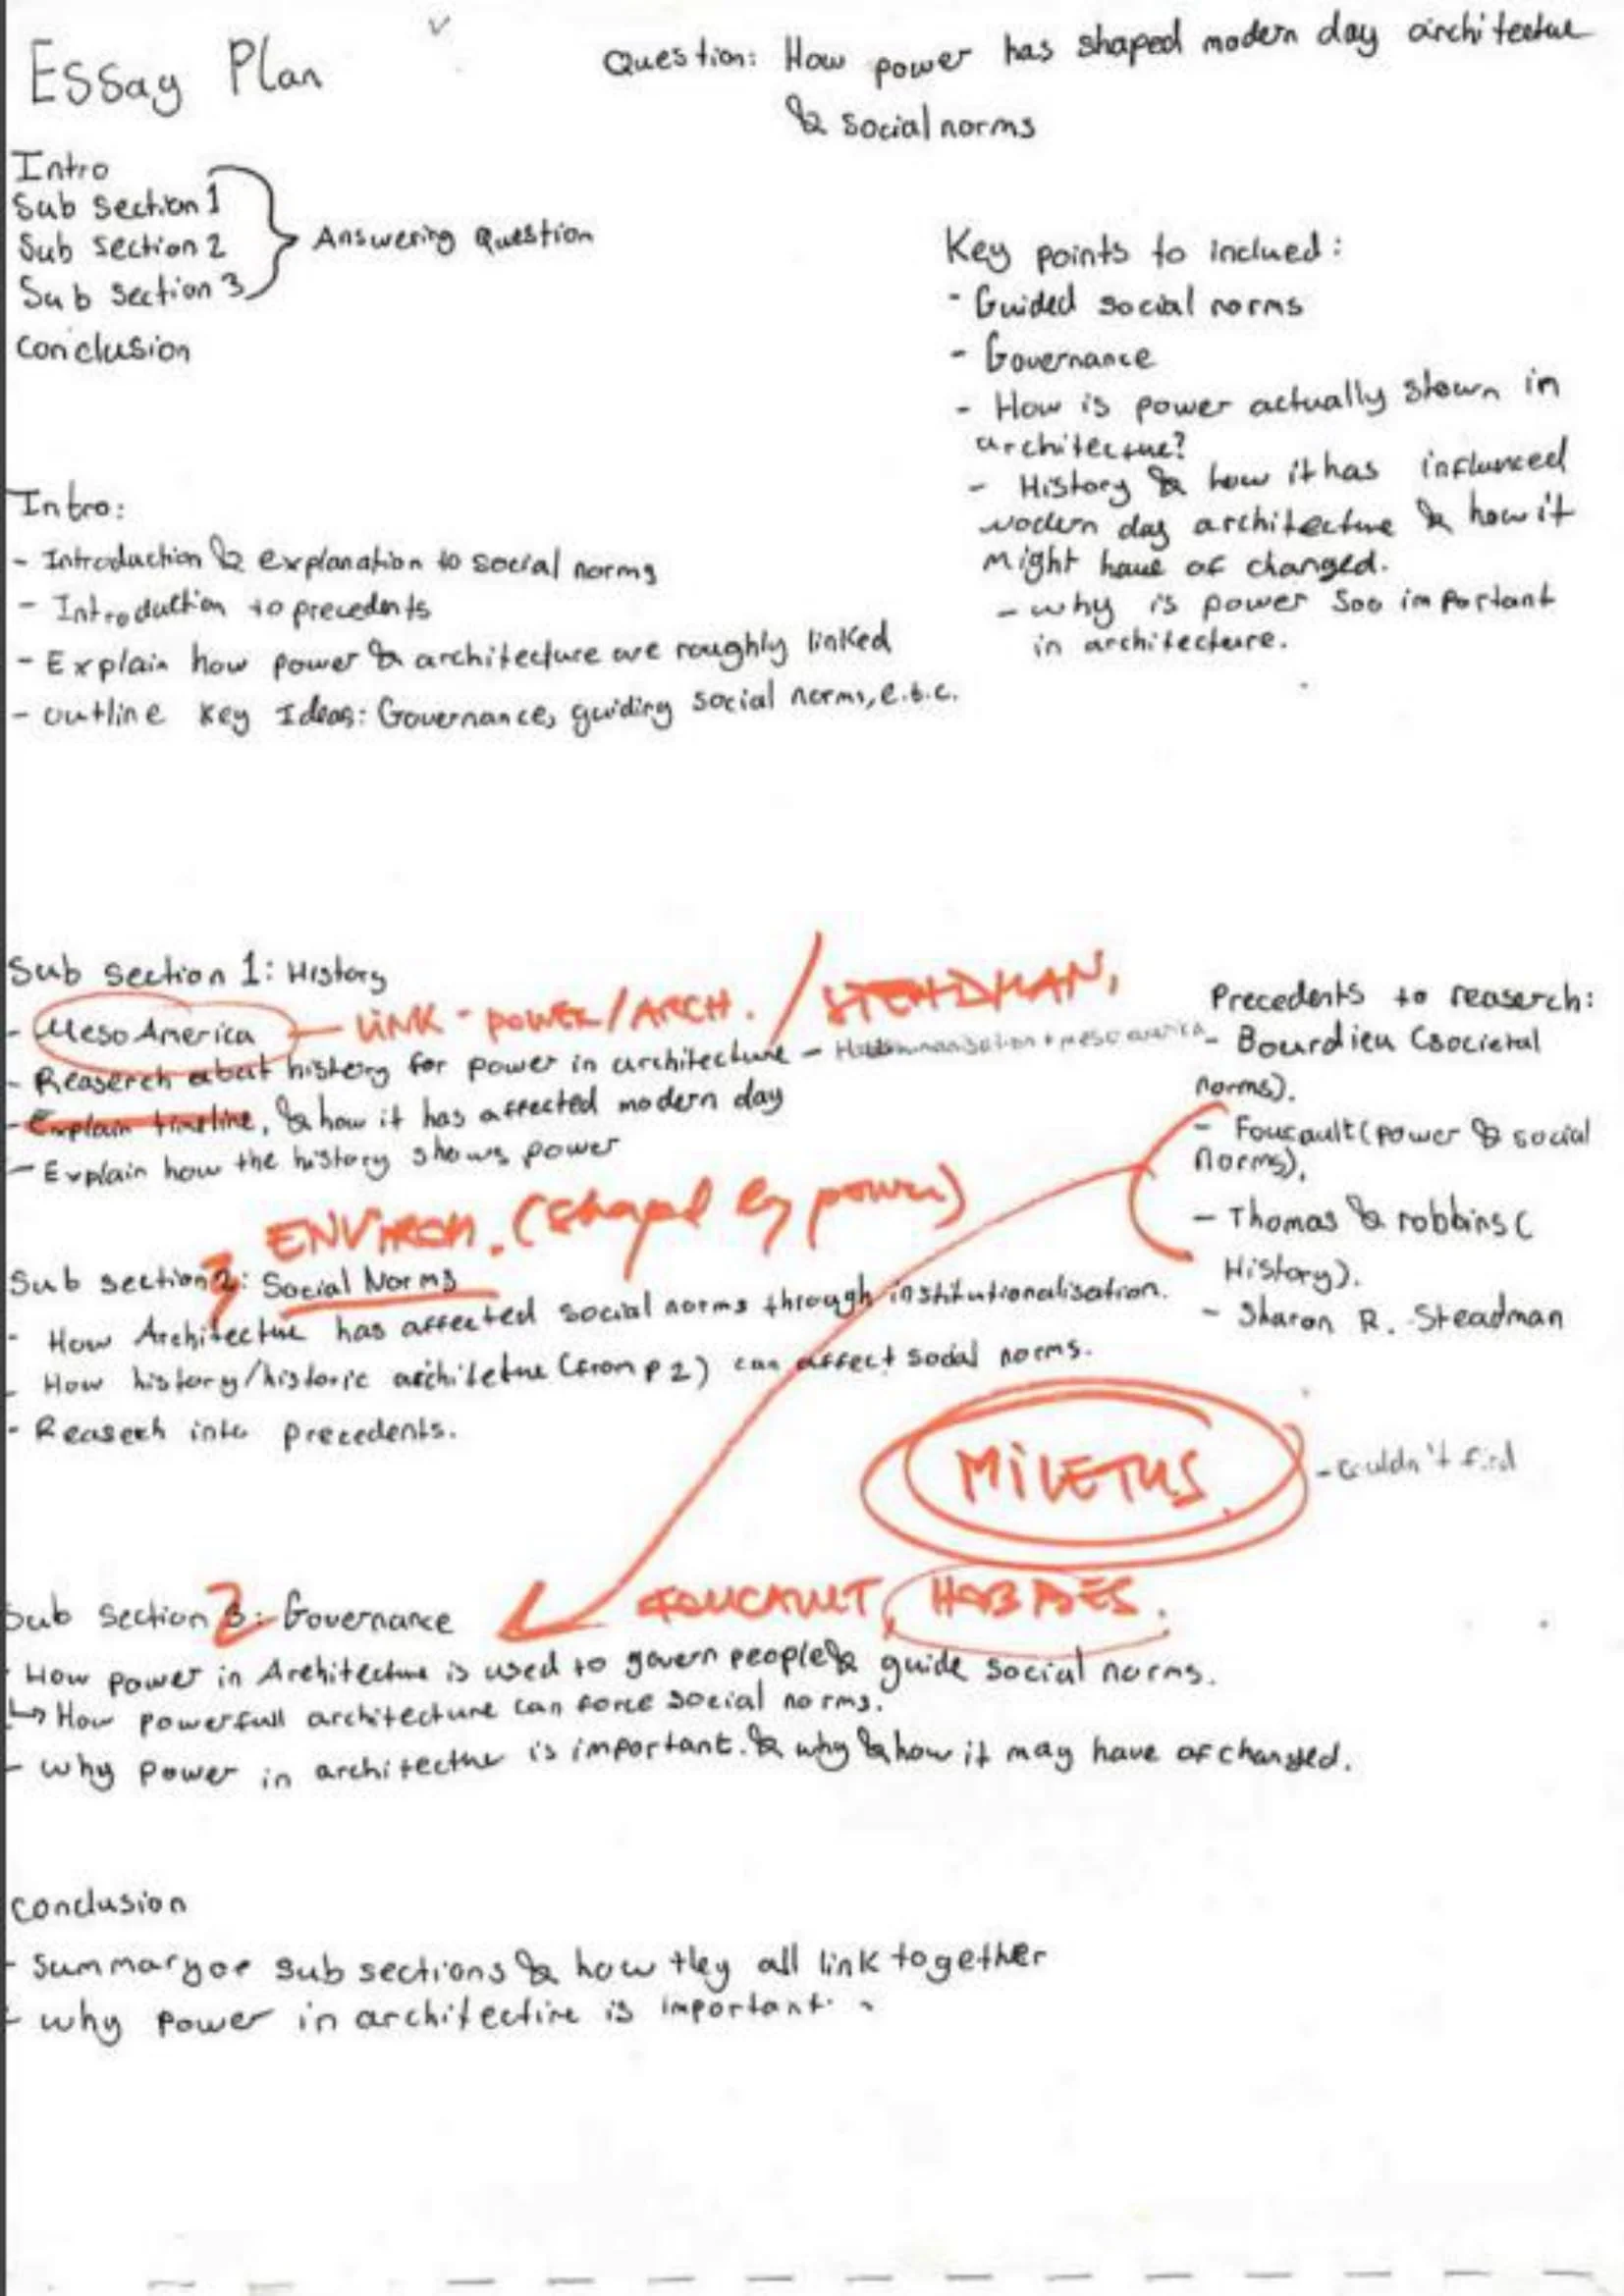 Essay Plan
Question: How power has shaped modern day architectue
& social norms
Intro
Sub section 1
Sub section 2
Sub section 3
Answering Question
Conclusion
Key points to inclued:
- Guided social norms
- Governance
- How is power actually shown in
architectue?
- History & how it has influnced
modern day architecture & how it
might have of changed.
- why is power soo important
in architecture.
Intro:
- Introduction & explanation to social norms
- Introduction to precedents
- Explain how power & architecture are roughly linked
- outline key Ideas: Governance, guiding social norms, e.t.c.
Sub section 1: History
- Meso America - LINK - POWER/ARCH. / STEADMAN,
- Reaserch about history for power in architecture - + meso america
- Explain timeline, & how it has affected modern day
- Explain how the history shows power
Precedents to reaserch:
- Bourdieu (societal
norms).
- Foucault (power & social
norms).
- Thomas & robbins (
History).
- Sharon R. Steadman
ENVIRON. (shaped by power)
Sub section 3: Social Norms
- How Architectue has affected social norms through institutionalisation.
- How history/historic architetue (from p 2) can affect social norms.
- Reaserch into precedents.
MILETUS
- couldn't find
FOUCAULT, HOBBES.
Sub section 2: Governance
- How power in Architecture is used to govern people & guide social norms.
↳ How powerfull architecture can force social norms.
- why power in architectue is important. & why & how it may have of changed.
Conclusion
- Summary of sub sections & how they all link together
- why power in architecture is important.